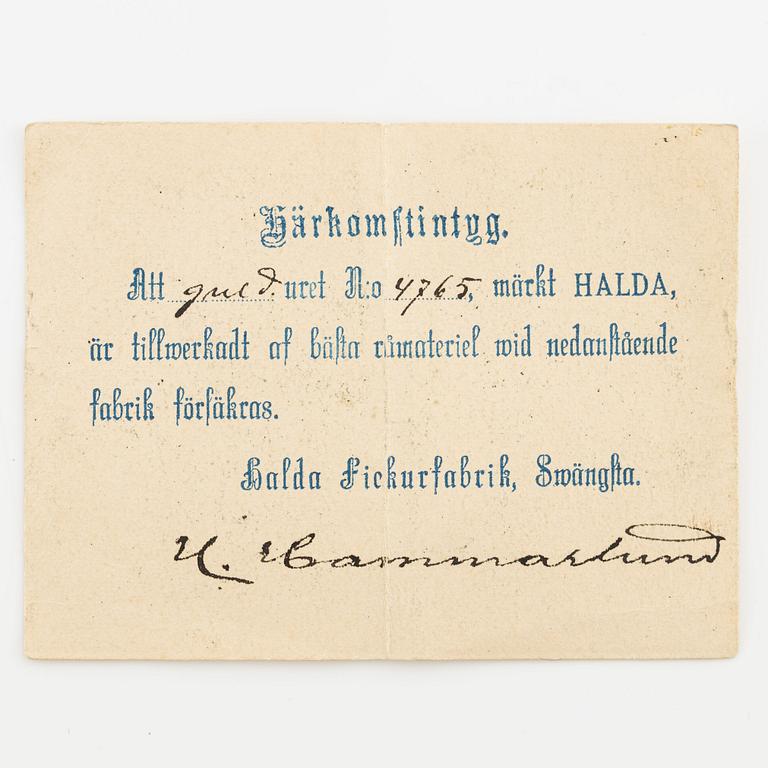 Härkomstintyg.
Att guld uret N:o 4765, märkt HALDA,
är tillwerkadt af bästa råmateriel wid nedanstående
fabrik försäkras.
Halda Fickurfabrik, Swängsta.
H. Hammarlund